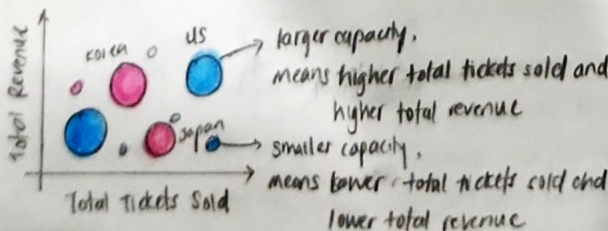 Total Revenue
Korea
US
Japan
Total Tickets Sold
larger capacity,
means higher total tickets sold and
higher total revenue
smaller capacity,
means lower total tickets sold and
lower total revenue